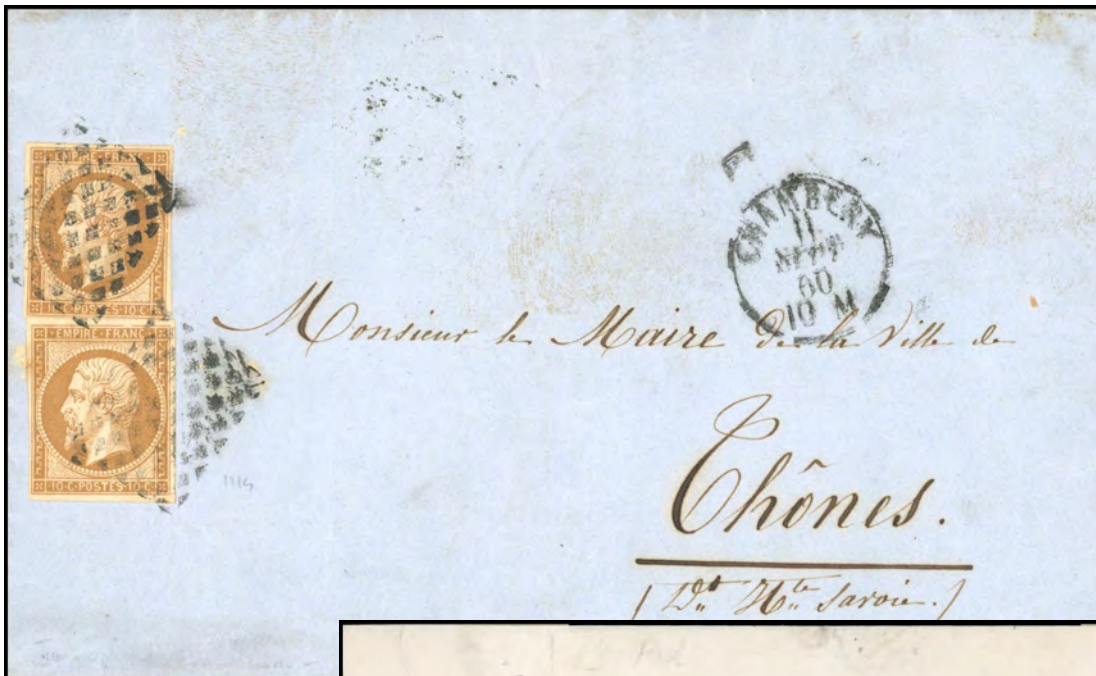 EMPIRE FRANC
10·C·POSTES·10·C
EMPIRE FRANC
10·C·POSTES·10·C
CHAMBERY
11
SEPT
60
10 M
Monsieur le Maire de la Ville de
Thônes.
(Dt Hte Savoie.)